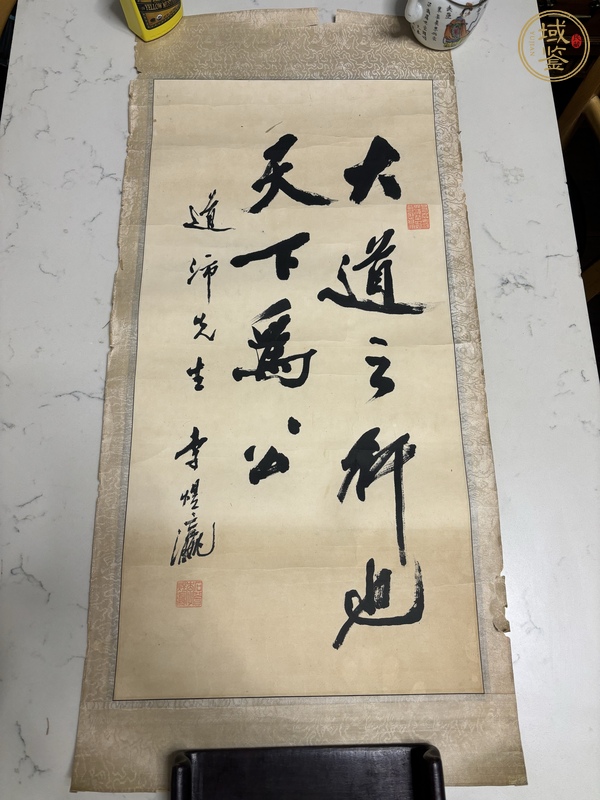 大道之行也
天下為公
道沛先生 李煜瀛
域鉴